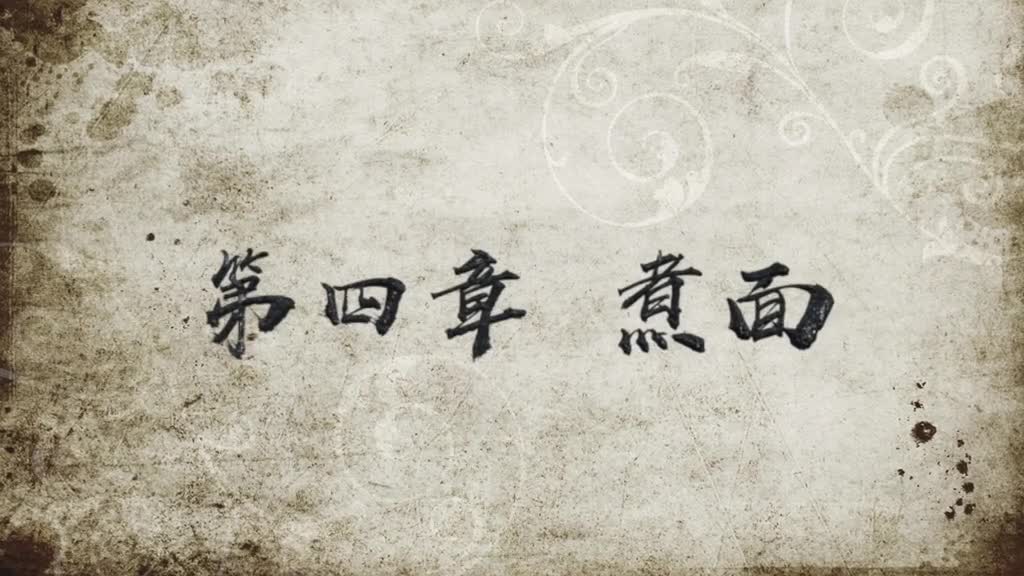 第四章 煮面